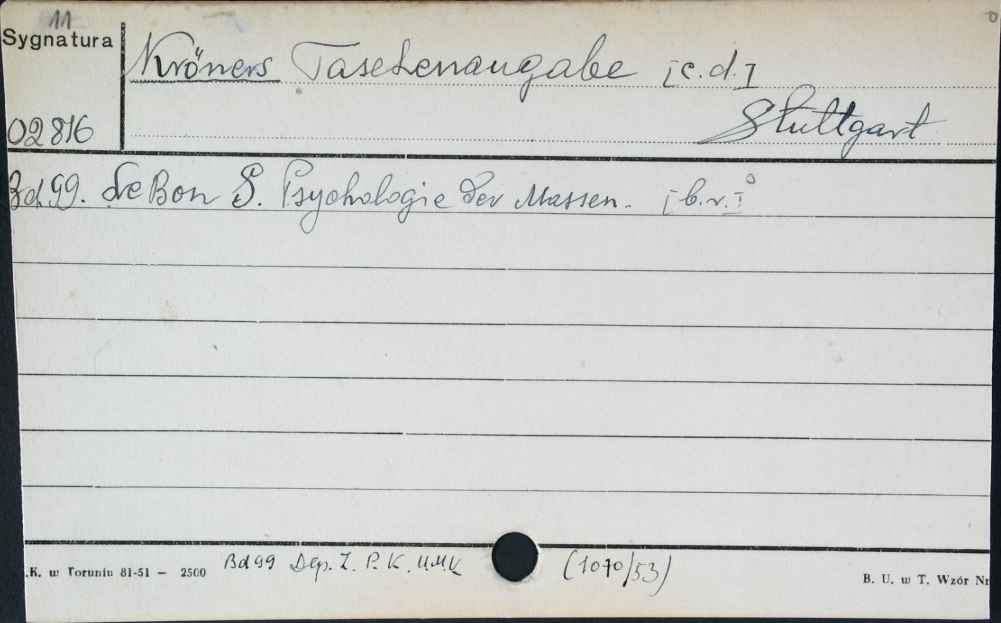 11
Sygnatura
Kröners Taschenausgabe [c.d.]
02816
Stuttgart
Bd 99. Le Bon G. Psychologie der Massen. [b.r.]
Bd 99 Dep. Z. P. K. UMK (1070/53)
.K. w Toruniu 81-51 – 2500
B. U. w T. Wzór Nr